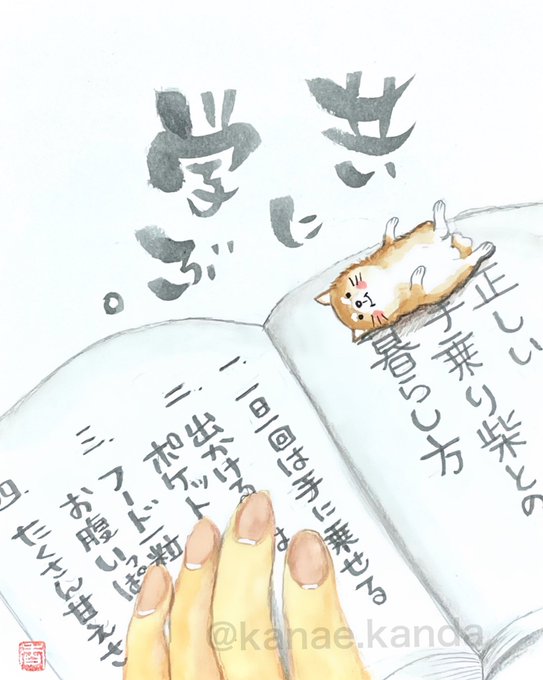 共に
学ぶ。
正しい
手乗り柴との
暮らし方
一. 一日一回は手に乗せる
二. 出かける
ポケット
三. フード一粒
お腹いっぱ
四. たくさん甘えさ
@kanae.kanda